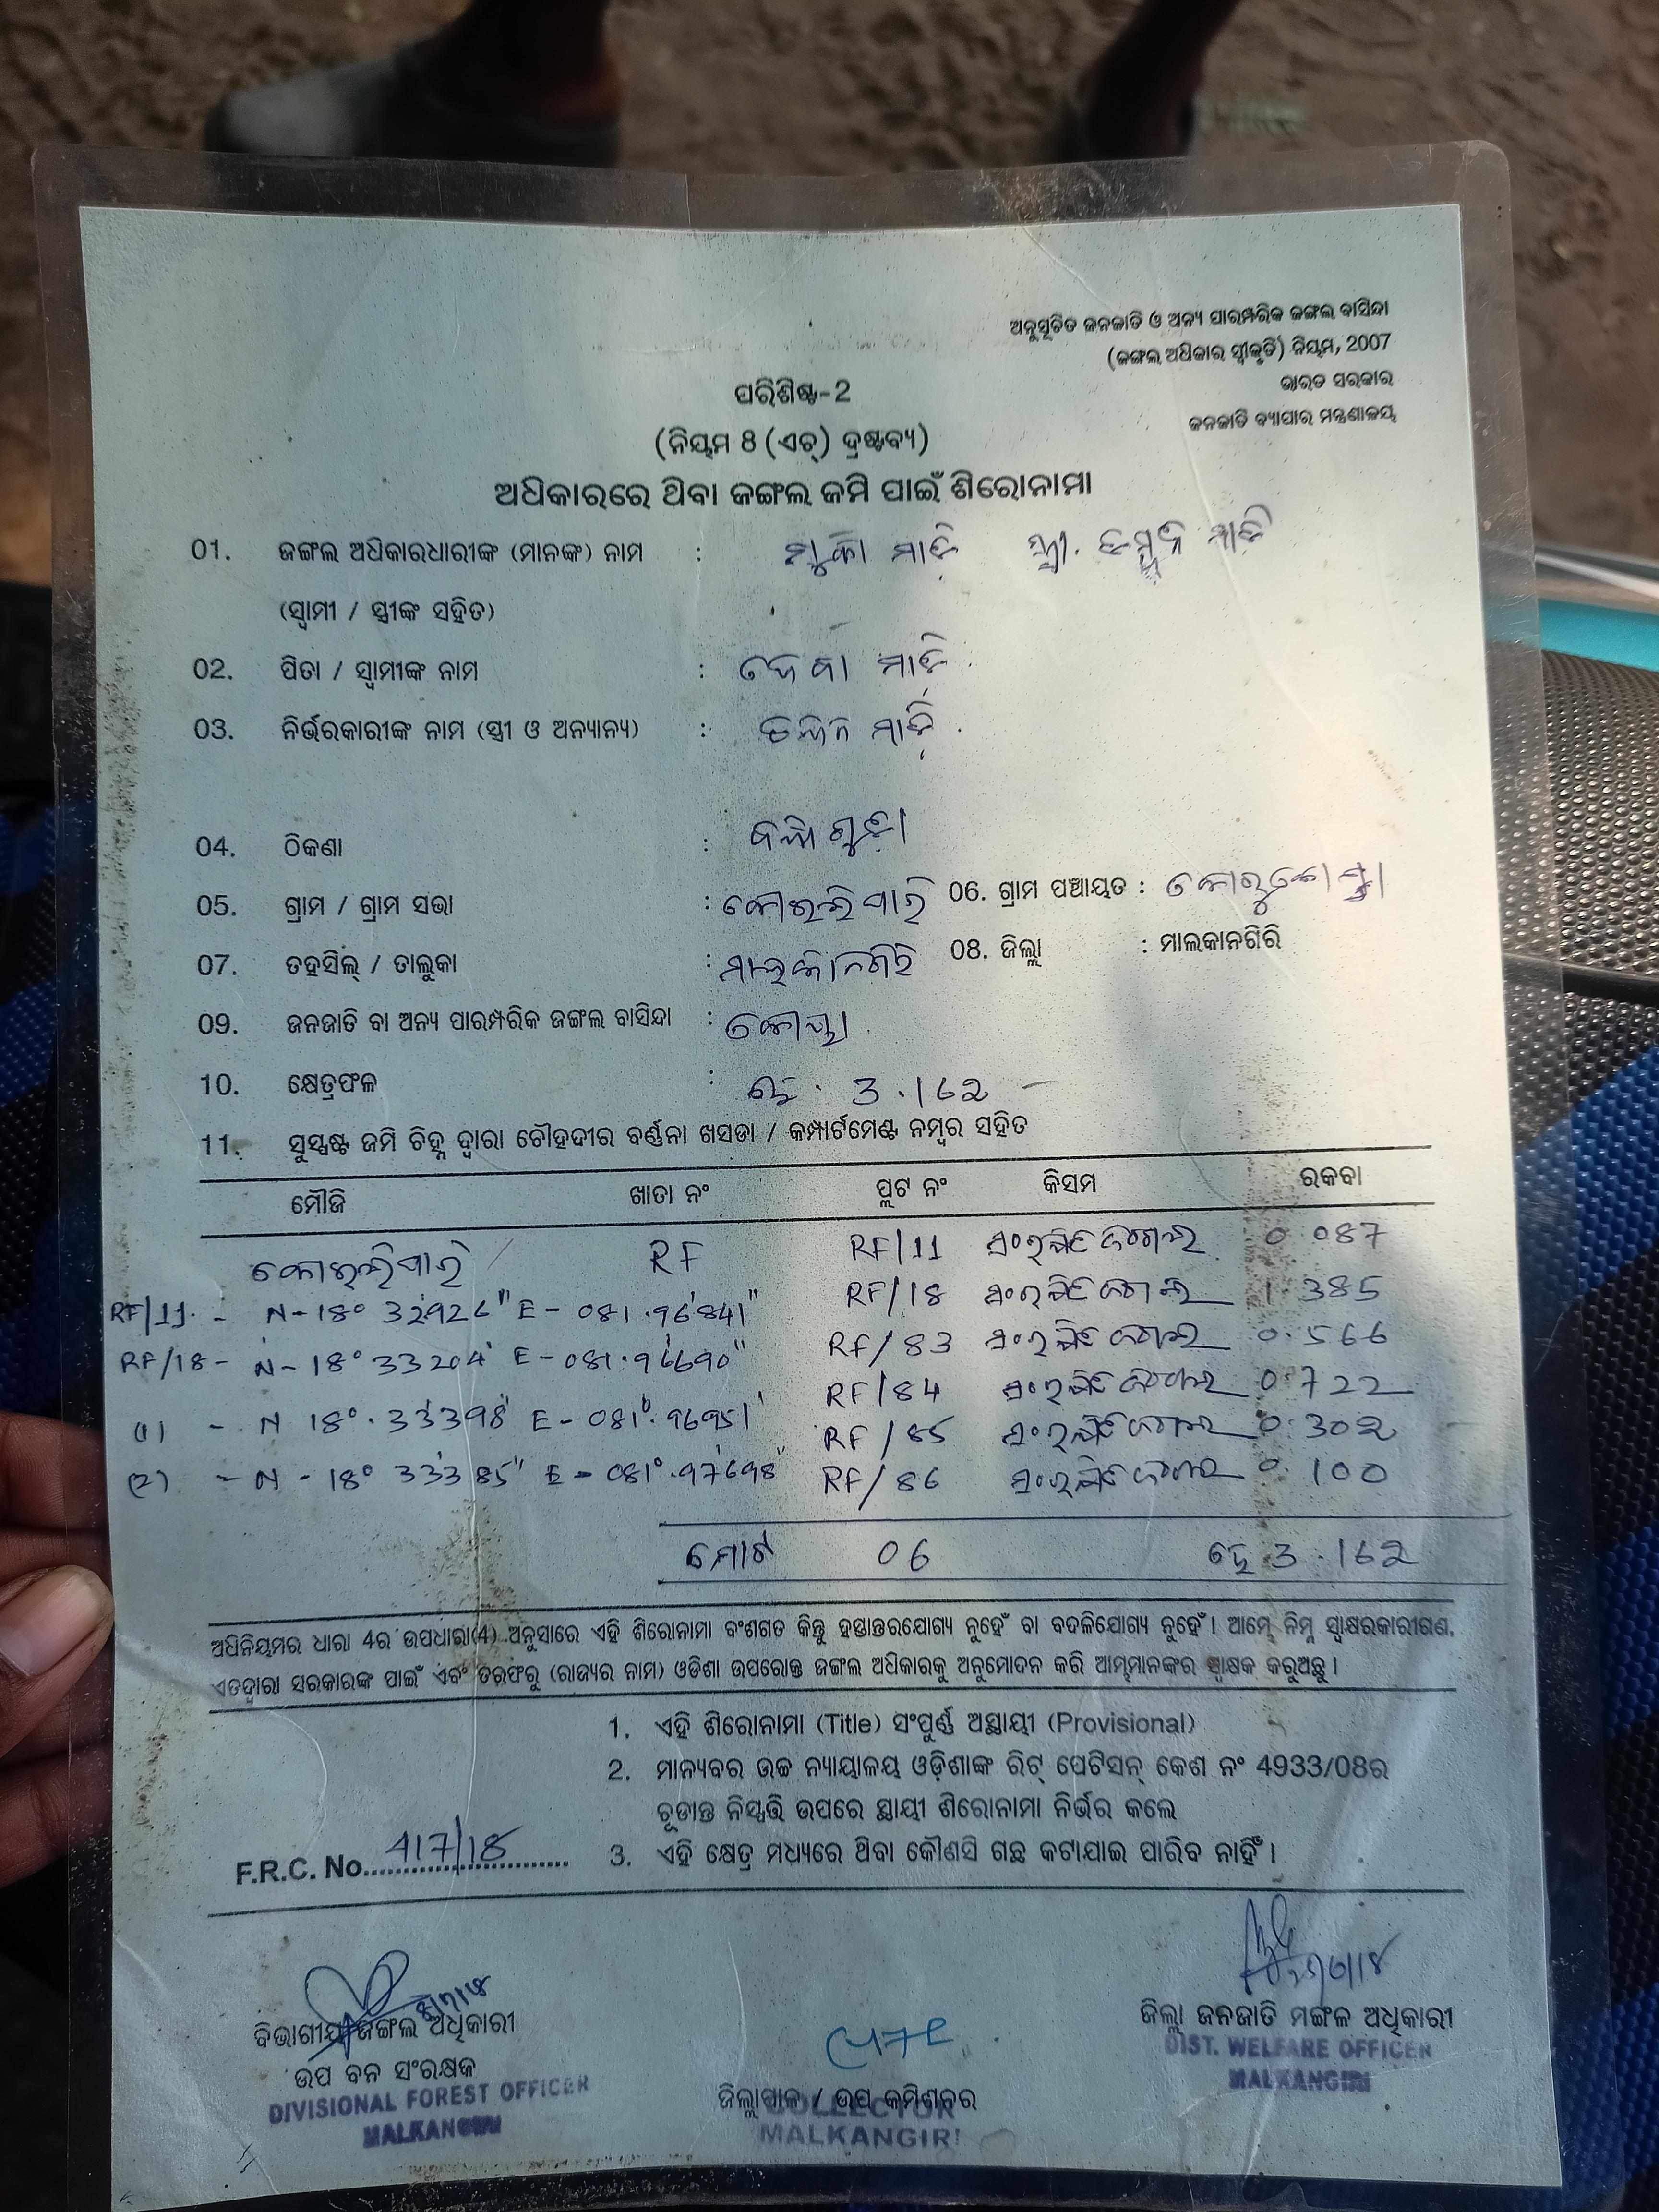 ଅନୁସୂଚିତ ଜନଜାତି ଓ ଅନ୍ୟ ପାରମ୍ପରିକ ଜଙ୍ଗଲ ବାସିନ୍ଦା
(ଜଙ୍ଗଲ ଅଧିକାର ସ୍ୱୀକୃତି) ନିୟମ, 2007
ଭାରତ ସରକାର
ଜନଜାତି ବ୍ୟାପାର ମନ୍ତ୍ରଣାଳୟ
ପରିଶିଷ୍ଟ-2
(ନିୟମ 8 (ଏଚ୍) ଦ୍ରଷ୍ଟବ୍ୟ)
ଅଧିକାରରେ ଥିବା ଜଙ୍ଗଲ ଜମି ପାଇଁ ଶିରୋନାମା
01. ଜଙ୍ଗଲ ଅଧିକାରଧାରୀଙ୍କ (ମାନଙ୍କ) ନାମ : ମାଡ଼ି ସ୍ତ୍ରୀ. ମାଡ଼ି
(ସ୍ୱାମୀ / ସ୍ତ୍ରୀଙ୍କ ସହିତ)
02. ପିତା / ସ୍ୱାମୀଙ୍କ ନାମ : ଦେବା ମାଡ଼ି
03. ନିର୍ଭରକାରୀଙ୍କ ନାମ (ସ୍ତ୍ରୀ ଓ ଅନ୍ୟାନ୍ୟ) : ମାଡ଼ି
04. ଠିକଣା :
05. ଗ୍ରାମ / ଗ୍ରାମ ସଭା : 06. ଗ୍ରାମ ପଞ୍ଚାୟତ : କୋରୁକୋଣ୍ଡା
07. ତହସିଲ୍ / ତାଲୁକା : ମାଲକାନଗିରି 08. ଜିଲ୍ଲା : ମାଲକାନଗିରି
09. ଜନଜାତି ବା ଅନ୍ୟ ପାରମ୍ପରିକ ଜଙ୍ଗଲ ବାସିନ୍ଦା : କୋୟା
10. କ୍ଷେତ୍ରଫଳ : ହେ. 3.162
11. ସୁସ୍ପଷ୍ଟ ଜମି ଚିହ୍ନ ଦ୍ୱାରା ଚୌହଦୀର ବର୍ଣ୍ଣନା ଖସଡା / କମ୍ପାର୍ଟମେଣ୍ଟ ନମ୍ବର ସହିତ
ମୌଜି ଖାତା ନଂ ପ୍ଲଟ ନଂ କିସମ ରକବା
RF RF/11 ସଂରକ୍ଷିତ ଜଙ୍ଗଲ 0.087
RF/11. - N-18° 32926" E-081.96841" RF/18 ସଂରକ୍ଷିତ ଜଙ୍ଗଲ 1.385
RF/18 - N-18° 33204' E-081.96690" RF/83 ସଂରକ୍ଷିତ ଜଙ୍ଗଲ 0.566
(1) - N 18°.33398' E-081°.96951' RF/84 ସଂରକ୍ଷିତ ଜଙ୍ଗଲ 0.722
RF/85 ସଂରକ୍ଷିତ ଜଙ୍ଗଲ 0.302
(2) - N-18° 33385" E-081°.97698' RF/86 ସଂରକ୍ଷିତ ଜଙ୍ଗଲ 0.100
ମୋଟ 06 ହେ 3.162
ଅଧିନିୟମର ଧାରା 4ର ଉପଧାରା(4) ଅନୁସାରେ ଏହି ଶିରୋନାମା ବଂଶଗତ କିନ୍ତୁ ହସ୍ତାନ୍ତରଯୋଗ୍ୟ ନୁହେଁ ବା ବଦଳିଯୋଗ୍ୟ ନୁହେଁ। ଆମ୍ଭେ ନିମ୍ନ ସ୍ୱାକ୍ଷରକାରୀଗଣ,
ଏତଦ୍ୱାରା ସରକାରଙ୍କ ପାଇଁ ଏବଂ ତରଫରୁ (ରାଜ୍ୟର ନାମ) ଓଡିଶା ଉପରୋକ୍ତ ଜଙ୍ଗଲ ଅଧିକାରକୁ ଅନୁମୋଦନ କରି ଆମ୍ଭମାନଙ୍କର ସ୍ୱାକ୍ଷକ କରୁଅଛୁ।
1. ଏହି ଶିରୋନାମା (Title) ସଂପୂର୍ଣ୍ଣ ଅସ୍ଥାୟୀ (Provisional)
2. ମାନ୍ୟବର ଉଚ୍ଚ ନ୍ୟାୟାଳୟ ଓଡ଼ିଶାଙ୍କ ରିଟ୍ ପେଟିସନ୍ କେଶ ନଂ 4933/08ର
ଚୂଡାନ୍ତ ନିସ୍ପତ୍ତି ଉପରେ ସ୍ଥାୟୀ ଶିରୋନାମା ନିର୍ଭର କଲେ
F.R.C. No. 417/18 3. ଏହି କ୍ଷେତ୍ର ମଧ୍ୟରେ ଥିବା କୌଣସି ଗଛ କଟାଯାଇ ପାରିବ ନାହିଁ।
ବିଭାଗୀୟ ଜଙ୍ଗଲ ଅଧିକାରୀ
ଉପ ବନ ସଂରକ୍ଷକ
DIVISIONAL FOREST OFFICER
MALKANGIRI
ଜିଲ୍ଲାପାଳ / ଉପ କମିଶନର
COLLECTOR
MALKANGIRI
ଜିଲ୍ଲା ଜନଜାତି ମଙ୍ଗଳ ଅଧିକାରୀ
DIST. WELFARE OFFICER
MALKANGIRI